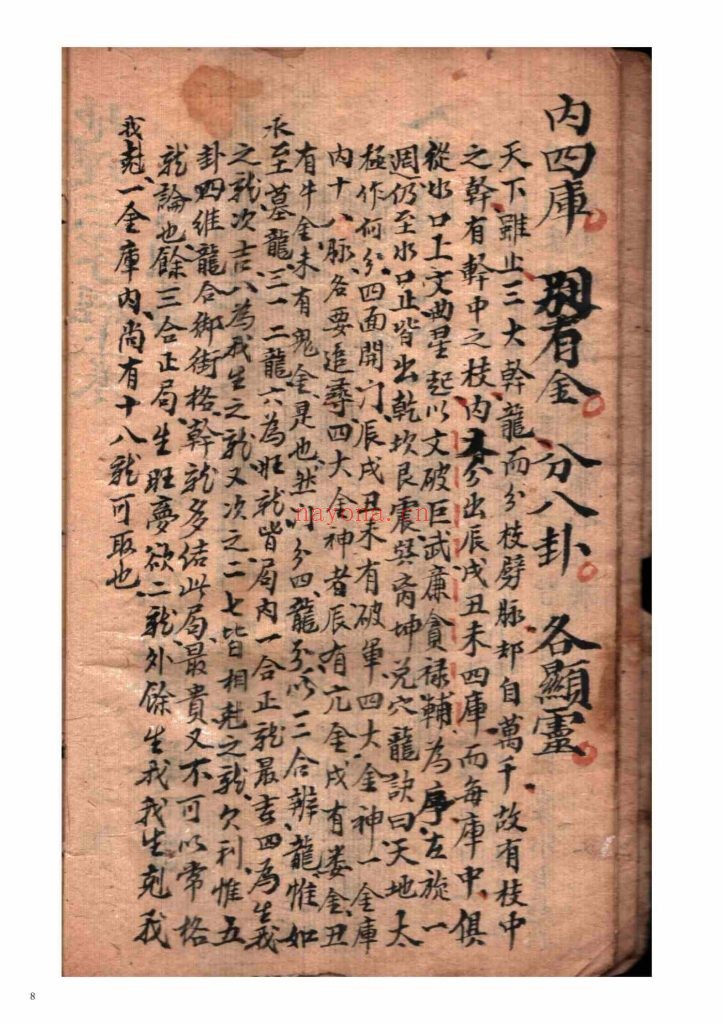 内四庫 別有金 分八卦 各顯靈
天下雖止三大幹龍而分枝劈脉却自萬千故有枝中
之幹有幹中之枝内又分出辰戌丑未四庫而每庫中俱
從水口上文曲星起以文破巨武廉貪祿輔為序左旋一
週仍至水口止皆出乾坎艮震巽离坤兑穴龍訣曰天地太
極作何分四面開门辰戌丑未有破軍四大金神一金庫
内十八脉各要追尋四大金神者辰有亢金戌有娄金丑
有牛金未有鬼金是也然以分四龍分以三合辨龍惟如
承至墓龍三一二龍六為旺龍皆局内一合正龍最吉四為生我
之龍次吉八為我生之龍又次之二七皆相尅之龍欠利惟五
卦四維龍合御街格幹龍多结此局最貴又不可以常格
龍論也餘三合正局生旺夢欲二龍外餘生我我生剋我
我尅一金庫内尚有十八龍可取也
nayona.cn
8